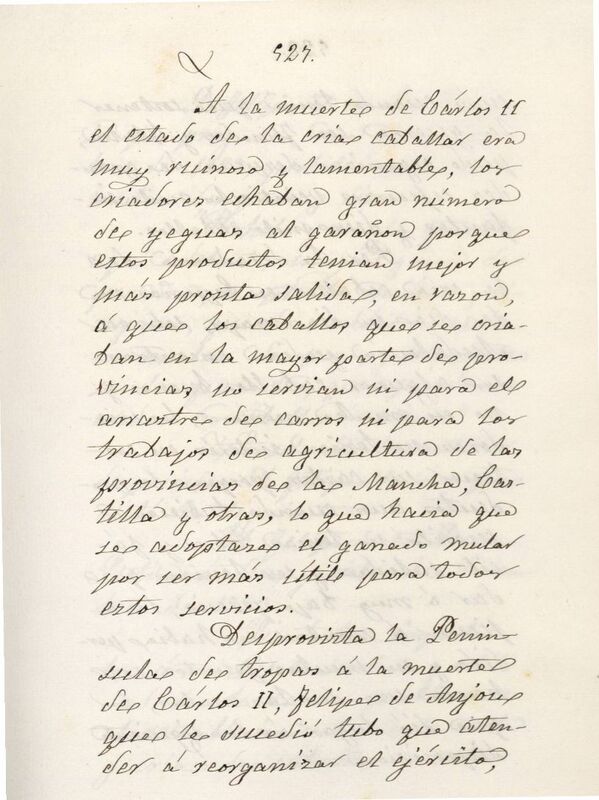 527.
A la muerte de Cárlos II
el estado de la cria caballar era
muy ruinoso y lamentable, los
criadores echaban gran número
de yeguas al garañon porque
estos productos tenian mejor y
más pronta salida, en razon,
á que los caballos que se cria-
ban en la mayor parte de pro-
vincias no servian ni para el
arrastre de carros ni para los
trabajos de agricultura de las
provincias de la Mancha, Cas-
tilla y otras, lo que hacia que
se adoptase el ganado mular
por ser más útil para todos
estos servicios.
Desprovista la Penin-
sula de tropas á la muerte
de Cárlos II, Felipe de Anjou
que le sucedió tubo que aten-
der á reorganizar el ejército,